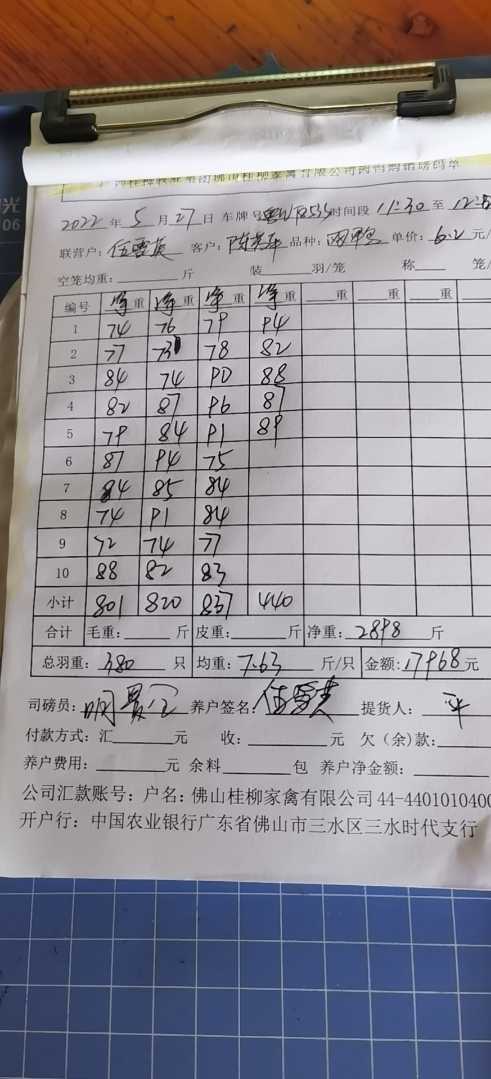 佛山桂柳家禽有限公司肉鸭购销磅码单
2022年5月27日 车牌号 时间段 11:30 至
联营户: 客户: 品种:肉鸭 单价:6.2元/
空笼均重: 斤 装 羽/笼 称 笼/
编号 净重 净重 净重 净重 重 重 重
1 74 76 79 94
2 77 73 78 82
3 84 74 90 88
4 82 87 96 87
5 79 84 91 89
6 87 94 75
7 84 85 84
8 74 91 84
9 72 74 77
10 88 82 83
小计 801 820 837 440
合计 毛重: 斤 皮重: 斤 净重:2898斤
总羽重:380只 均重:7.63斤/只 金额:17968元
司磅员: 养户签名: 提货人:平
付款方式:汇 元 收: 元 欠(余)款:
养户费用: 元 余料 包 养户净金额:
公司汇款账号:户名:佛山桂柳家禽有限公司 44-4401010400
开户行:中国农业银行广东省佛山市三水区三水时代支行